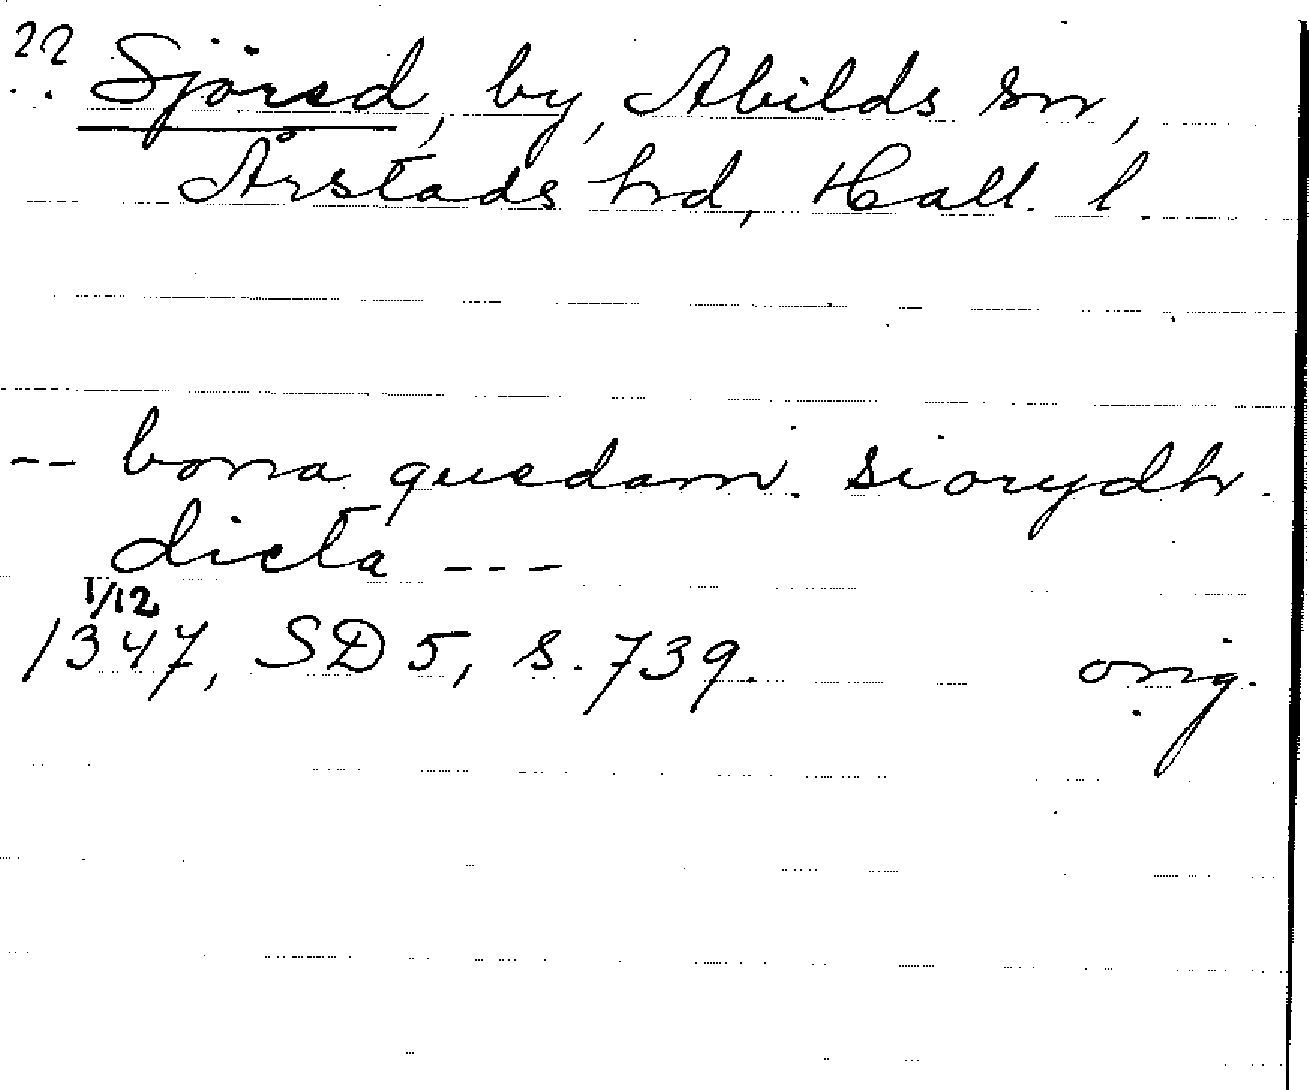 ?? Sjöred, by, Abilds sn,
Årstads hd, Hall. l.
-- bona quedam siorydh
dicta ---
1/12
1347, SD 5, s. 739. orig.